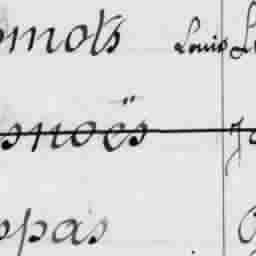 omots Louis L
snoës Ja
ppas